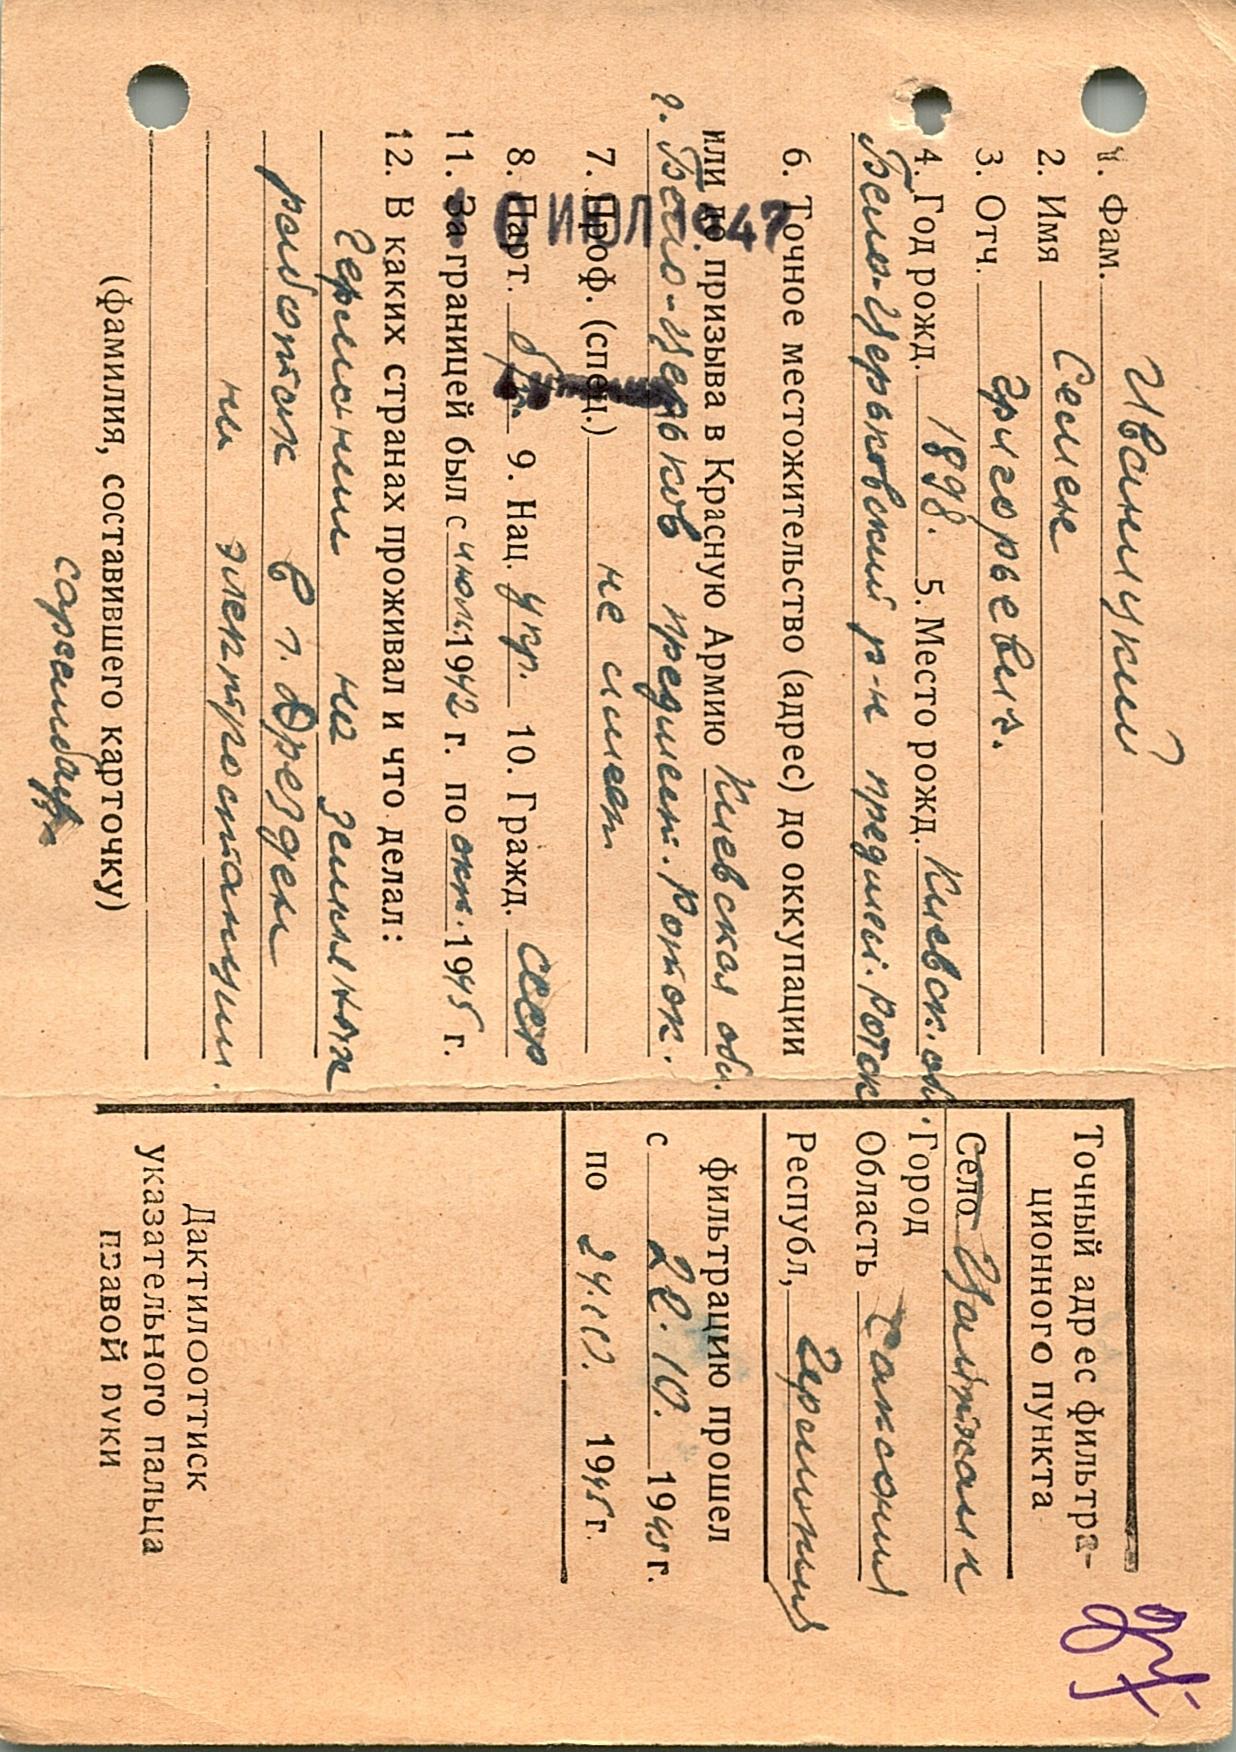 1. Фам. Иваницкий
2. Имя Семен
3. Отч. Григорьевич.
4. Год рожд. 1898. 5. Место рожд. Киевск. обл.
Бело-Церьковский р-н предмест. Роток
6. Точное местожительство (адрес) до оккупации
или до призыва в Красную Армию Киевская обл.
г. Бело-Церьков предмест. Роток.
7. Проф. (спец.) не имеет
8. Парт. б/п. 9. Нац. Укр. 10. Гражд. СССР
11. За границей был с июль 1942 г. по окт. 1945 г.
12. В каких странах проживал и что делал:
Германия на земляных
работах в г. Дрезден
на электростанции.
(фамилия, составившего карточку)
ИЮЛ 1947
Точный адрес фильтра-
ционного пункта
Село
Город
Область Саксония
Республ, Германия
фильтрацию прошел
с 22.10. 1945 г.
по 24.10. 1945 г.
Дактилооттиск
указательного пальца
правой руки